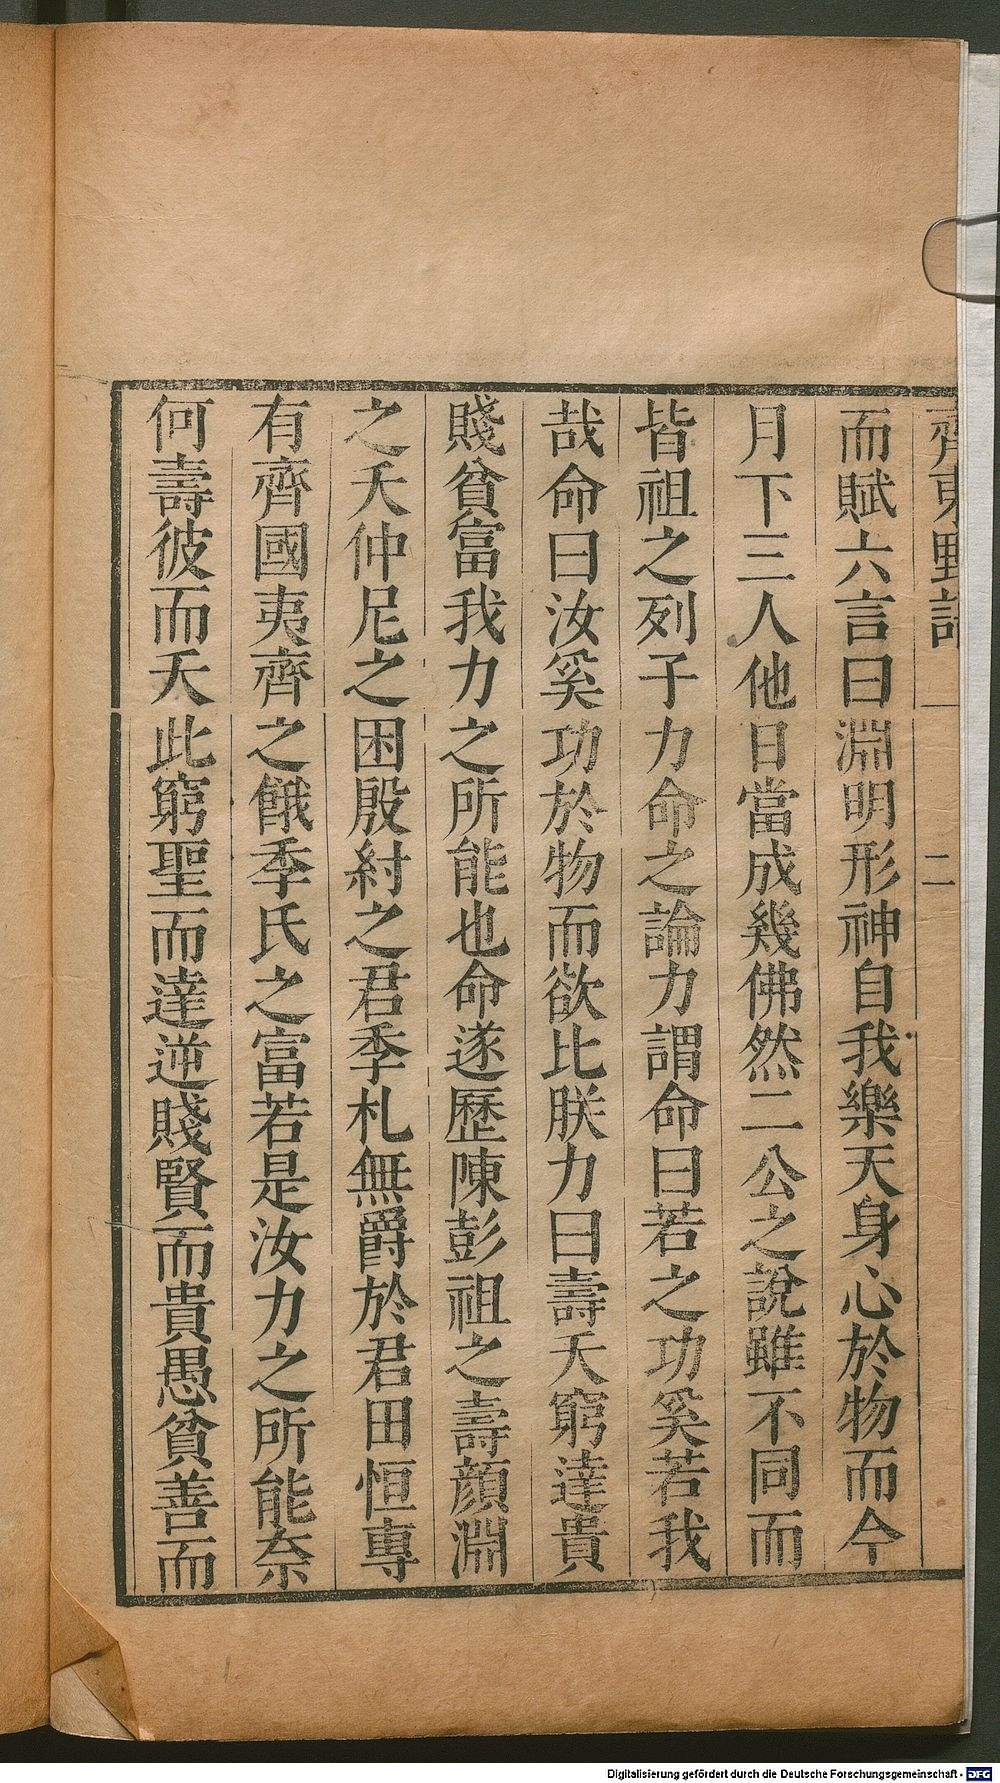 齊東野語 二
而賦六言曰淵明形神自我樂天身心於物而今
月下三人他日當成幾佛然二公之說雖不同而
皆祖之列子力命之論力謂命曰若之功奚若我
哉命曰汝奚功於物而欲比朕力曰壽夭窮達貴
賤貧富我力之所能也命遂歷陳彭祖之壽顔淵
之夭仲尼之困殷紂之君季札無爵於君田恒專
有齊國夷齊之餓季氏之富若是汝力之所能奈
何壽彼而夭此窮聖而達逆賤賢而貴愚貧善而
Digitalisierung gefördert durch die Deutsche Forschungsgemeinschaft - DFG